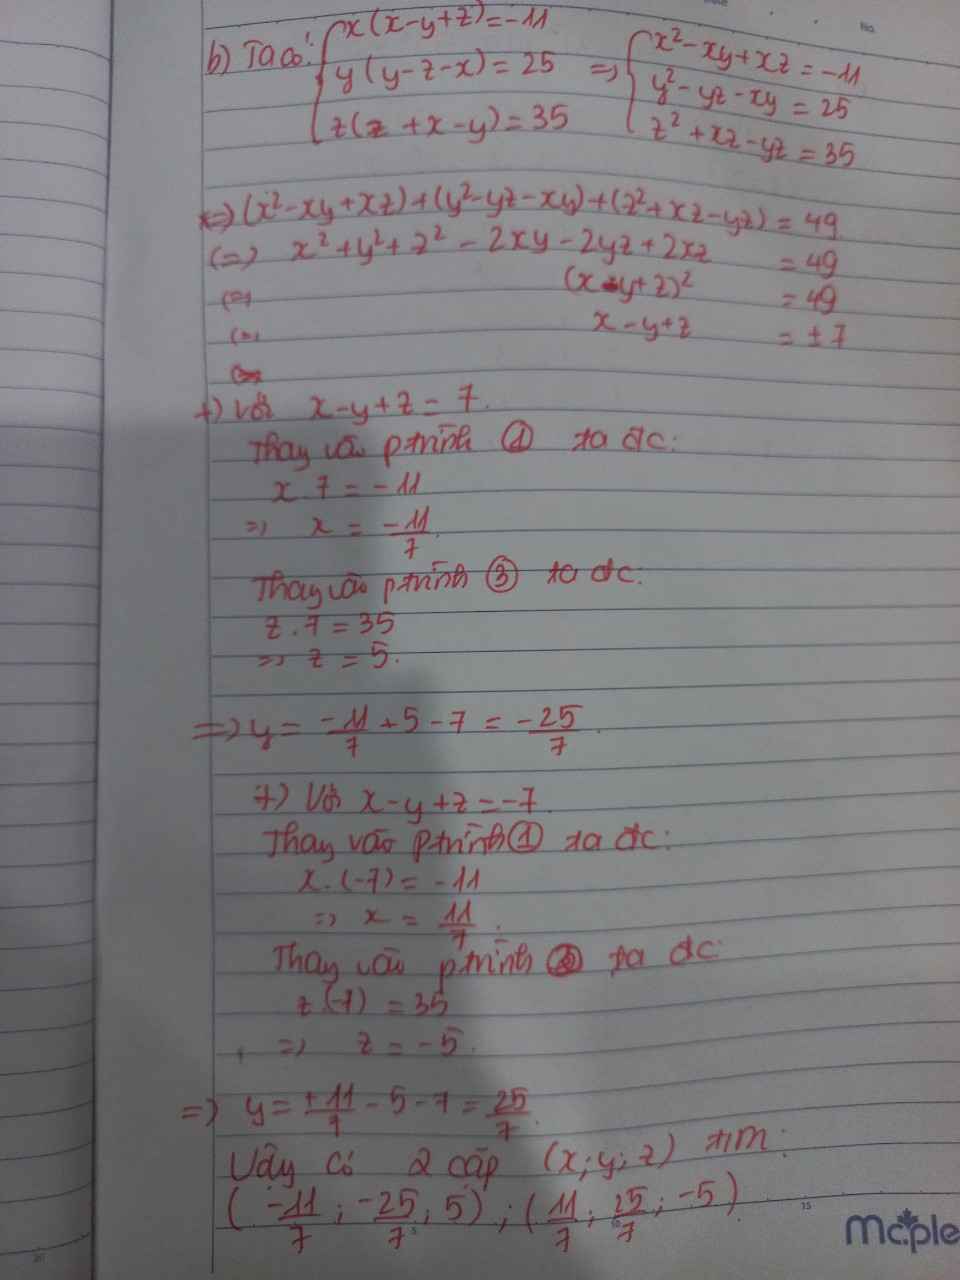 b) Ta có: { x(x-y+z) = -11
y(y-z-x) = 25
z(z+x-y) = 35
=> { x²-xy+xz = -11
y²-yz-xy = 25
z²+xz-yz = 35
<=> (x²-xy+xz)+(y²-yz-xy)+(z²+xz-yz) = 49
(=) x²+y²+z²-2xy-2yz+2xz = 49
(=) (x-y+z)² = 49
(=) x-y+z = ±7
+) Với x-y+z = 7.
Thay vào ptrình ① ta đc:
x.7 = -11
=> x = -11/7.
Thay vào ptrình ③ ta đc:
z.7 = 35
=> z = 5.
=> y = -11/7 + 5 - 7 = -25/7.
+) Với x-y+z = -7.
Thay vào ptrình ① ta đc:
x.(-7) = -11
=> x = 11/7.
Thay vào ptrình ③ ta đc:
z.(-7) = 35
=> z = -5.
=> y = +11/7 - 5 - 7 = 25/7.
Vậy có 2 cặp (x;y;z) tìm:
(-11/7; -25/7; 5); (11/7; 25/7; -5)
maple
No.
5
10
15